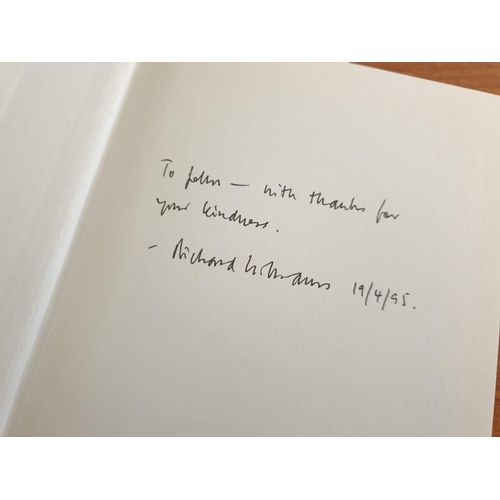 To John — with thanks for
your kindness.
- Richard 19/4/95.